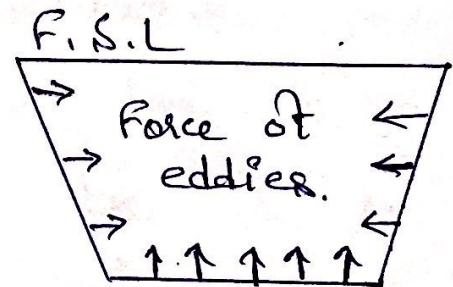 F.S.L
Force of
eddies.